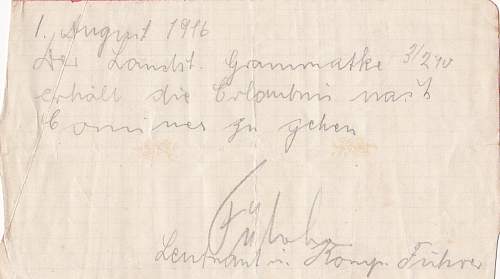 1. August 1916
Der Landst. Grammatke 3/240
erhält die Erlaubnis nach
Comines zu gehen
Leutnant u. Komp. Führer